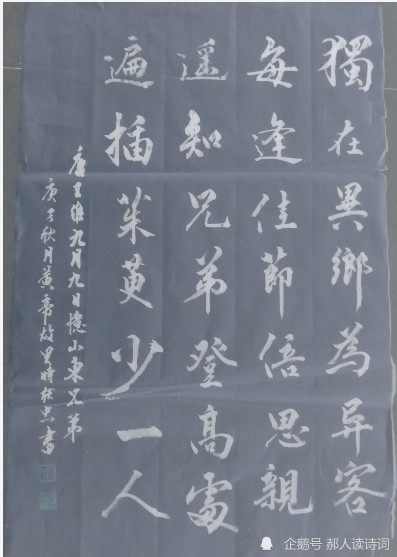 獨在異鄉為异客
每逢佳節倍思親
遥知兄弟登高處
遍插茱萸少一人
唐王維九月九日憶山東兄弟
庚子秋月黄帝故里時忠書
企鹅号 郝人读诗词